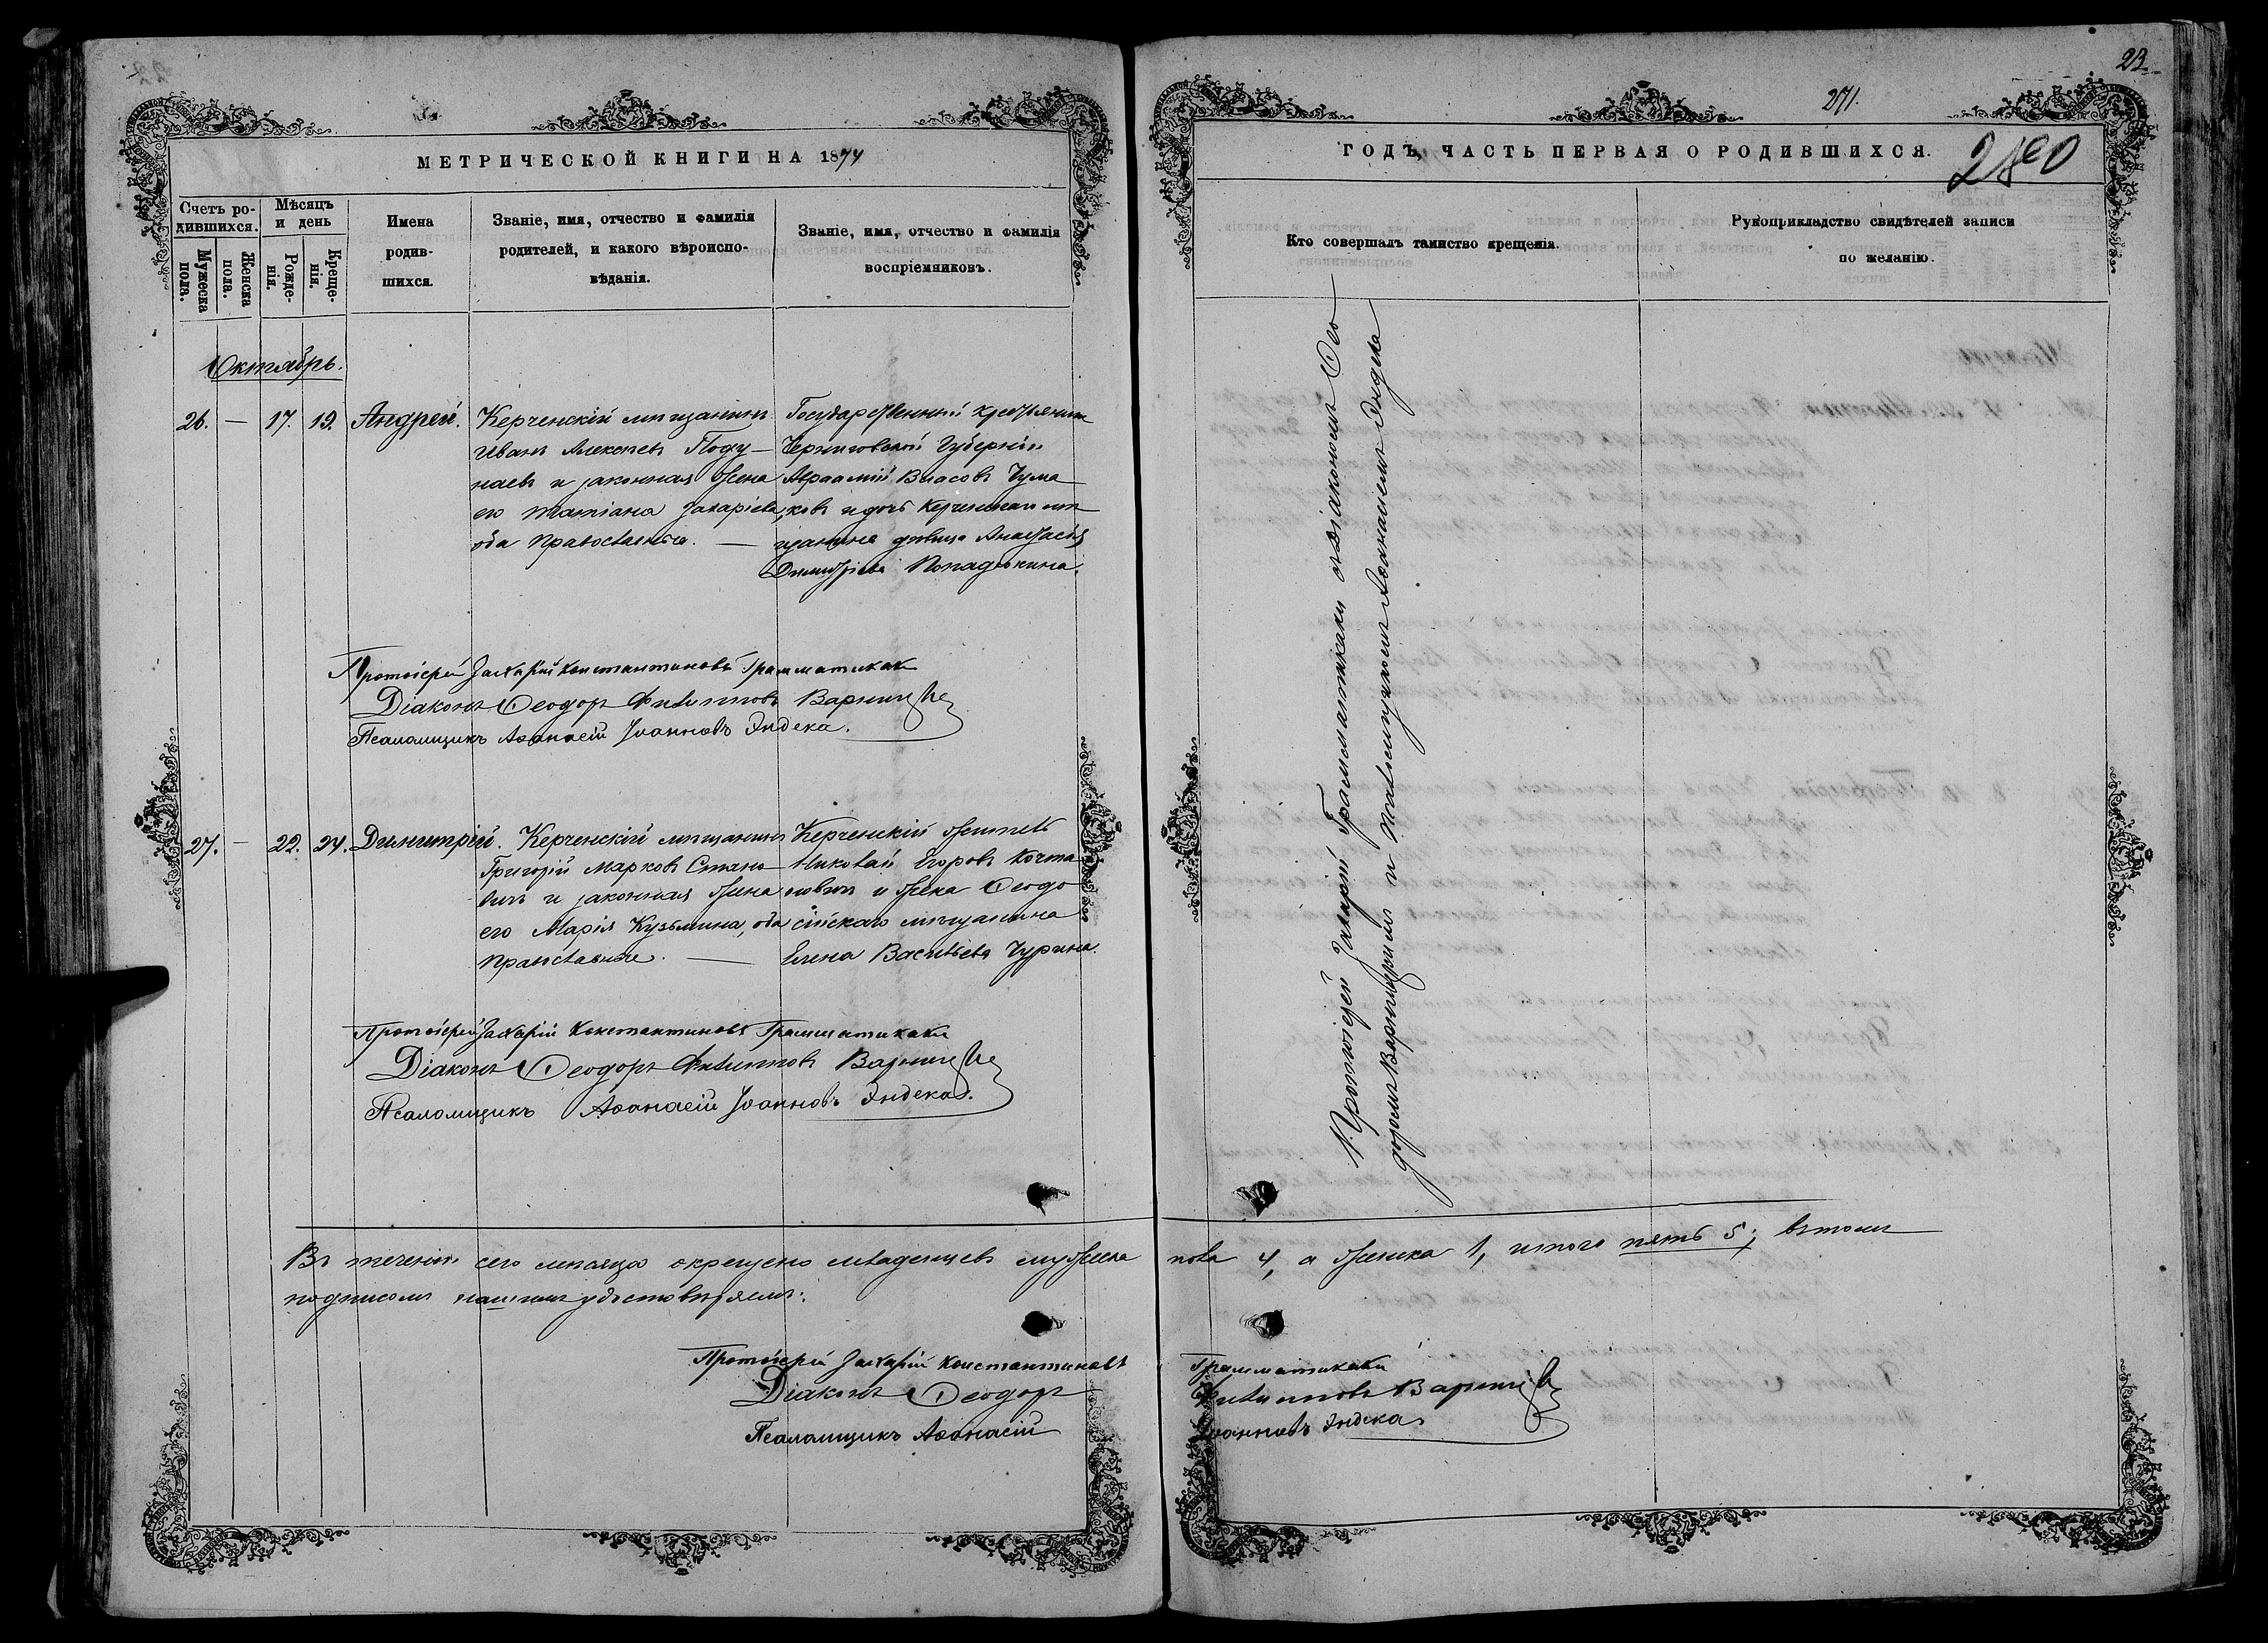 23
271.
280
МЕТРИЧЕСКОЙ КНИГИ НА 1874
ГОДЪ, ЧАСТЬ ПЕРВАЯ О РОДИВШИХСЯ.
Счетъ ро-
дившихся.
Мужеска
пола.
Женска
пола.
Мѣсяцъ
и день
Рожде-
нія.
Креще-
нія.
Имена
родив-
шихся.
Званіе, имя, отчество и фамилія
родителей, и какого вѣроиспо-
вѣданія.
Званіе, имя, отчество и фамилія
воспріемниковъ.
Кто совершалъ таинство крещенія.
Рукоприкладство свидѣтелей записи
по желанію.
Октябрь.
26. — 17. 19. Андрей.
Керченскій мѣщанинъ
Иванъ Алексѣевъ Поду-
наевъ и законная жена
его Татіана Захаріева,
оба православные. —
Государственный крестьянинъ
Черниговской Губерніи
Авраамій Власовъ Чума
ковъ и дочь Керченскаго мѣ
щанина дѣвица Анастасія
Димитріева Попадькина.
Протоіерей Захарій Константиновъ Грамматикаки
Діаконъ Ѳеодоръ Филипповъ
Псаломщикъ Аѳанасій Іоанновъ Эндека.
27. — 22. 24. Димитрій.
Керченскій мѣщанинъ
Григорій Марковъ Стано-
вичъ и законная жена
его Марія Кузьмина, оба
православные. —
Керченскій
Николай Егоровъ
и жена Ѳеодо
сійскаго мѣщанина
Елена Васильева Чурина.
Протоіерей Захарій Константиновъ Грамматикаки
Діаконъ Ѳеодоръ Филипповъ
Псаломщикъ Аѳанасій Іоанновъ Эндека.
Протоіерей Захарій Грамматикаки съ діакономъ Ѳео
доромъ и псаломщикомъ Аѳанасіемъ Эндека
Въ теченіи сего мѣсяца окрещено младенцевъ мужеска пола 4, а женска 1, итого пять 5; въ томъ
подписомъ нашимъ удостовѣряемъ:
Протоіерей Захарій Константиновъ Грамматикаки
Діаконъ Ѳеодоръ Филипповъ
Псаломщикъ Аѳанасій Іоанновъ Эндека